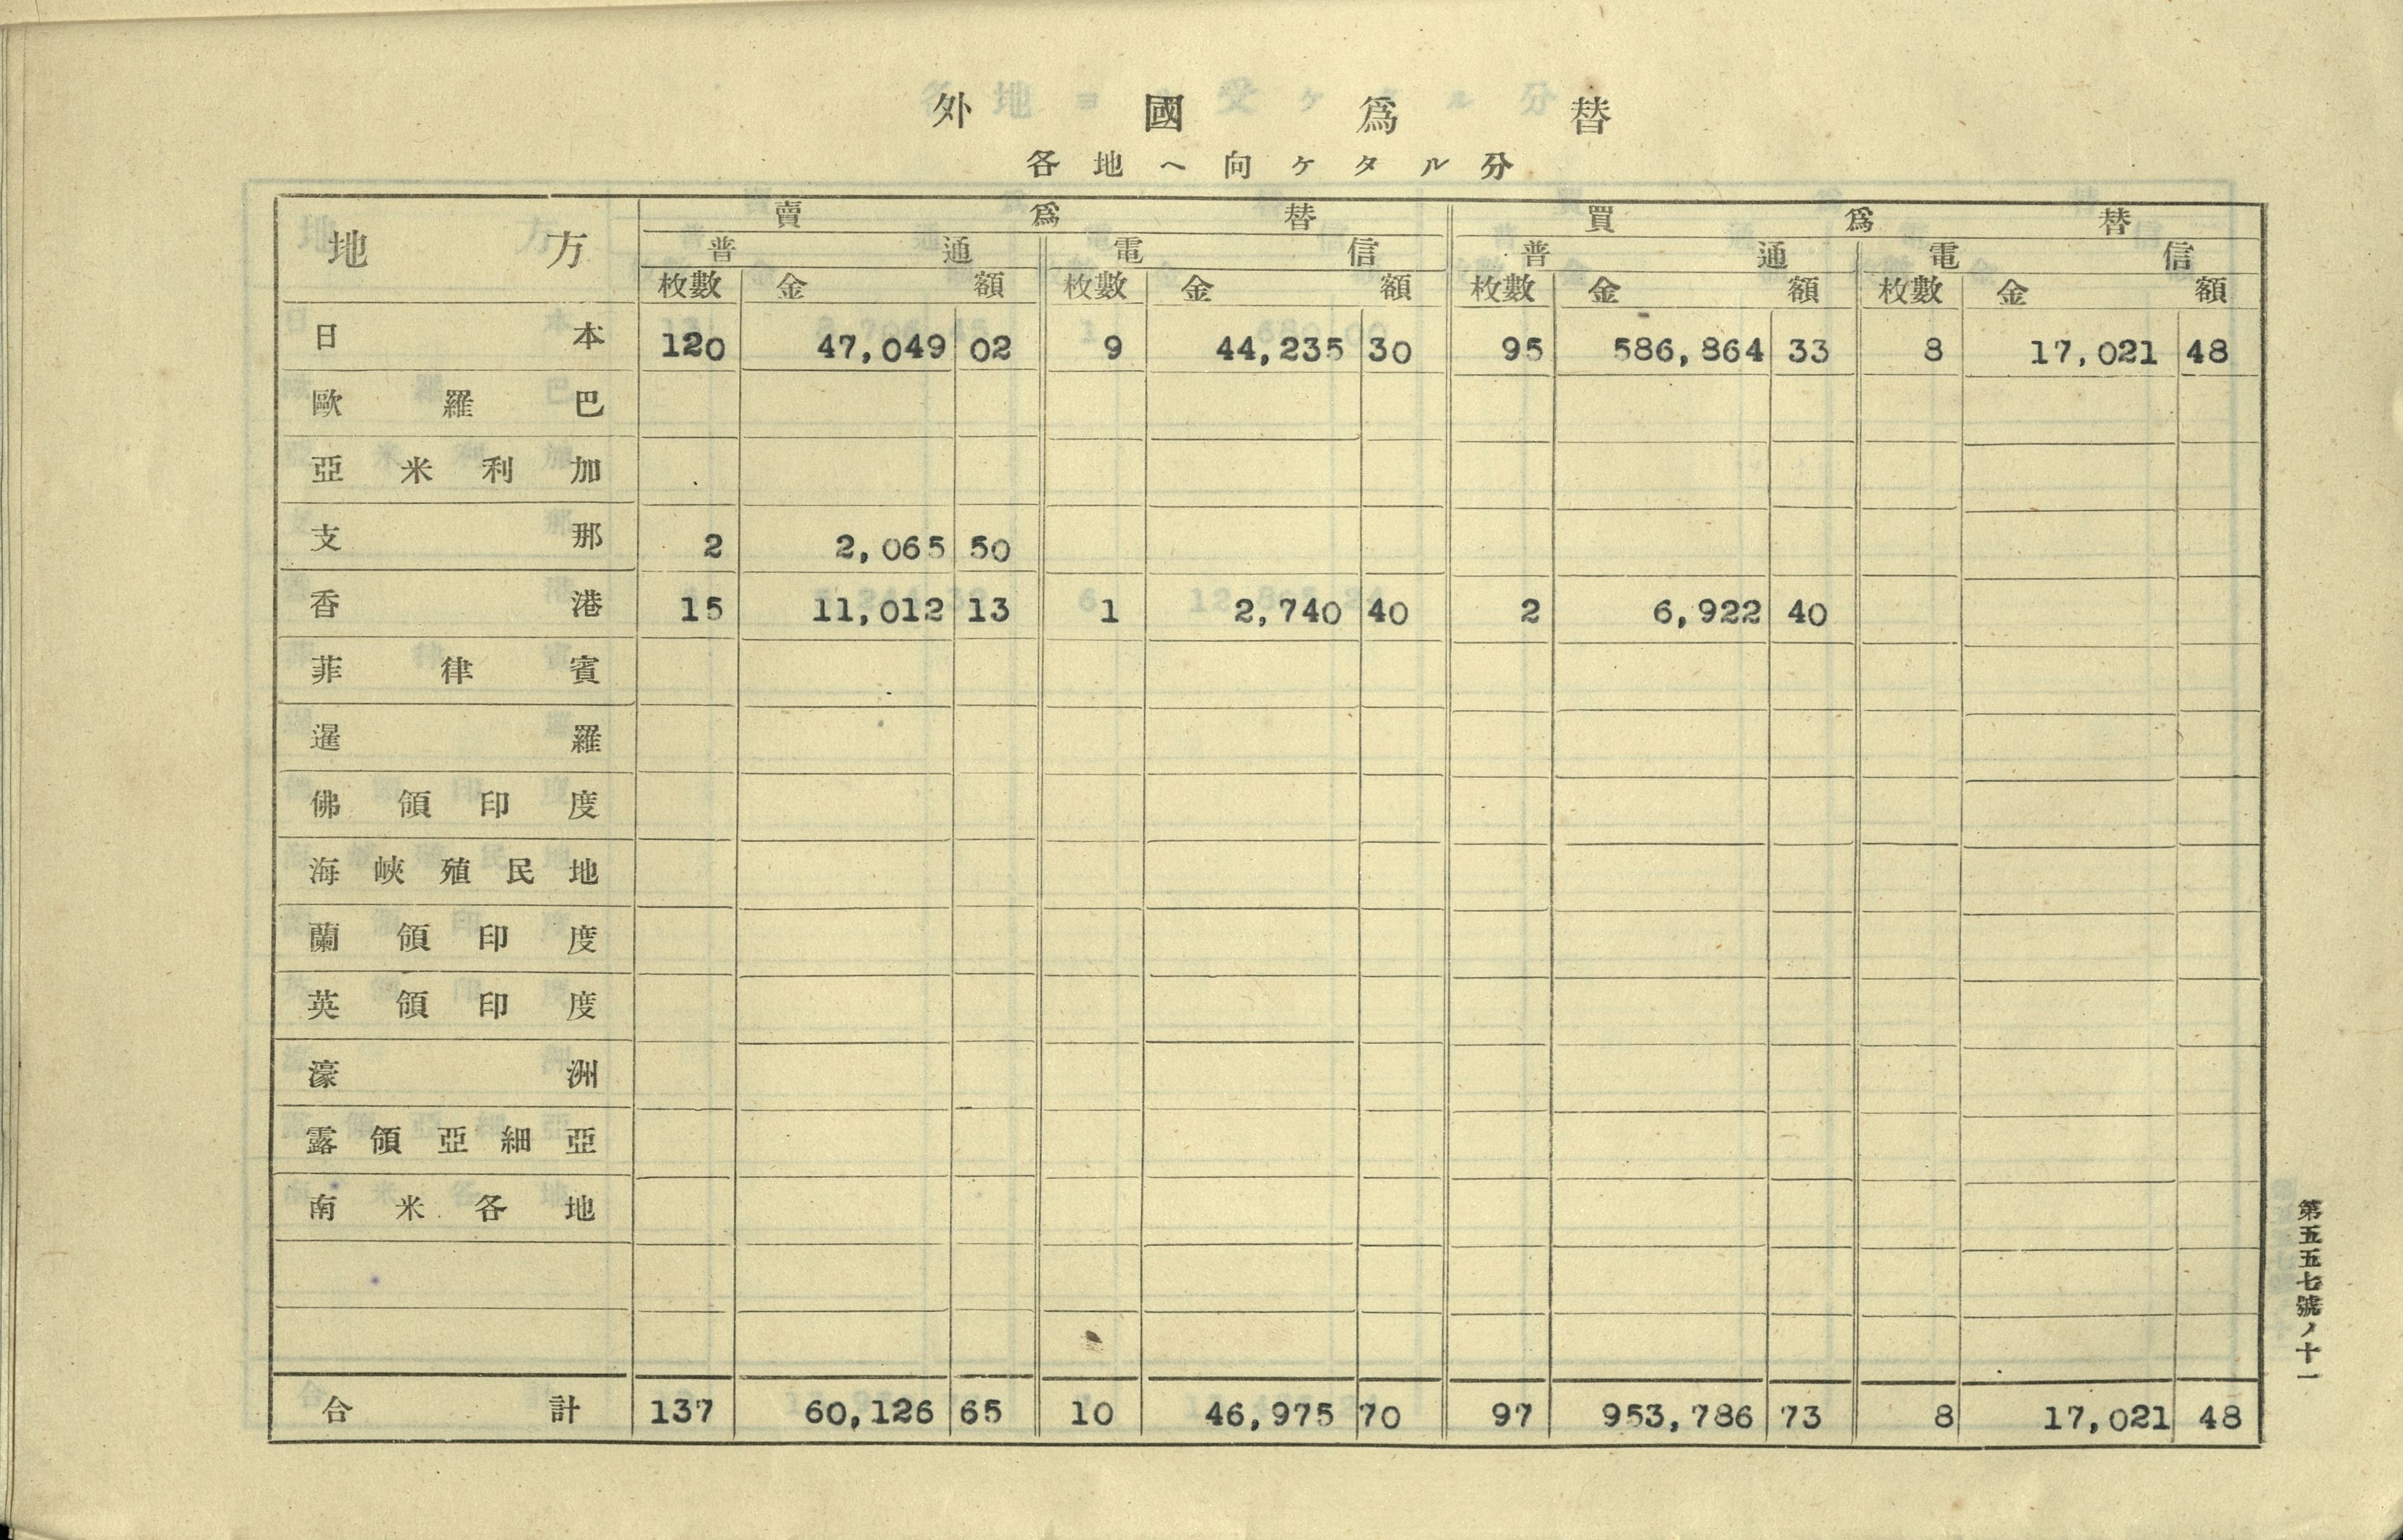 外國爲替
各地ヘ向ケタル分
地方 賣爲替 買爲替
普通 電信 普通 電信
枚數 金額 枚數 金額 枚數 金額 枚數 金額
日本 120 47,049 02 9 44,235 30 95 586,864 33 8 17,021 48
歐羅巴
亞米利加
支那 2 2,065 50
香港 15 11,012 13 1 2,740 40 2 6,922 40
菲律賓
暹羅
佛領印度
海峽殖民地
蘭領印度
英領印度
濠洲
露領亞細亞
南米各地
合計 137 60,126 65 10 46,975 70 97 953,786 73 8 17,021 48
第五五七號ノ十一